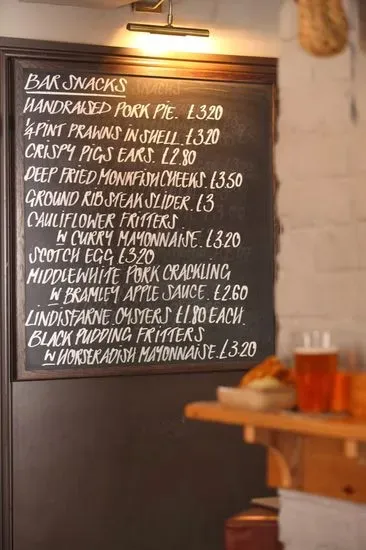 BAR SNACKS
HANDRAISED PORK PIE. £3.20
¼ PINT PRAWNS IN SHELL. £3.20
CRISPY PIGS EARS. £2.80
DEEP FRIED MONKFISH CHEEKS. £3.50
GROUND RIB STEAK SLIDER. £3
CAULIFLOWER FRITTERS
W CURRY MAYONNAISE. £3.20
SCOTCH EGG £3.20
MIDDLEWHITE PORK CRACKLING
W BRAMLEY APPLE SAUCE. £2.60
LINDISFARNE OYSTERS £1.80 EACH.
BLACK PUDDING FRITTERS
W HORSERADISH MAYONNAISE. £3.20